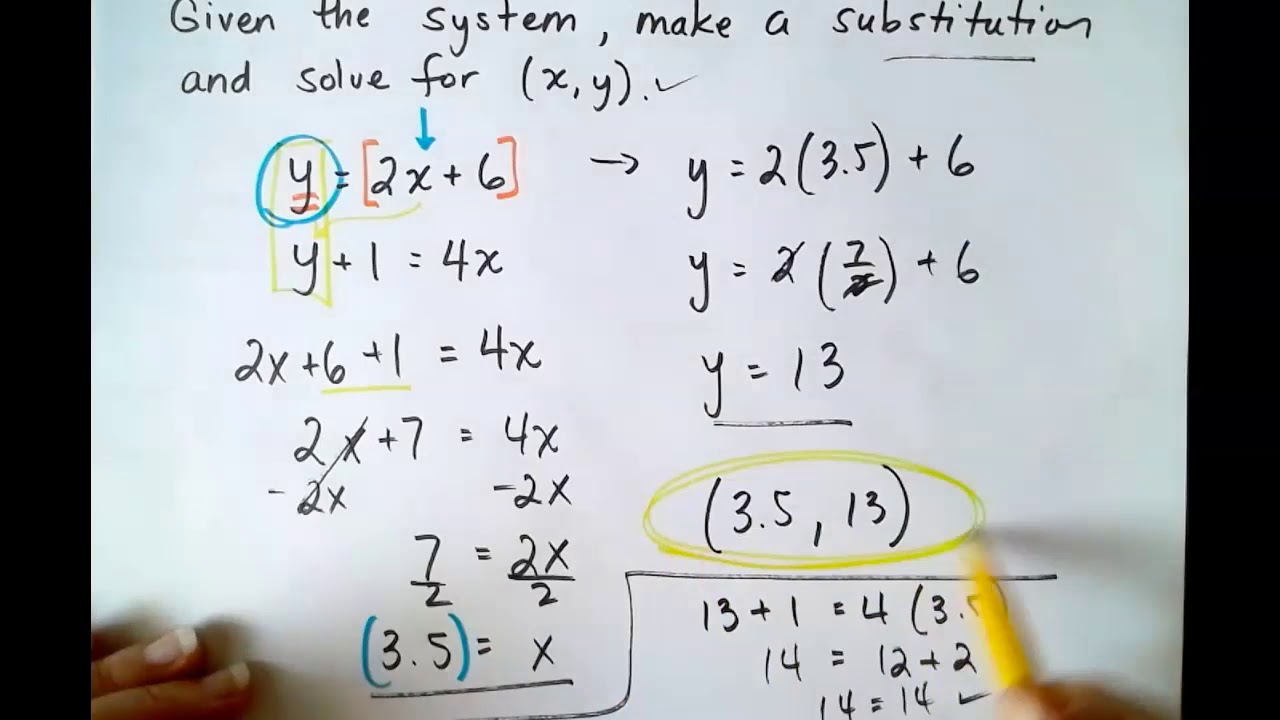 Given the system, make a substitution
and solve for (x, y). ✓
y = [2x + 6]
y + 1 = 4x
2x + 6 + 1 = 4x
2x + 7 = 4x
- 2x -2x
7/2 = 2x/2
(3.5) = x
→ y = 2(3.5) + 6
y = 2(7/2) + 6
y = 13
(3.5, 13)
13 + 1 = 4(3.5)
14 = 12 + 2
14 = 14 ✓